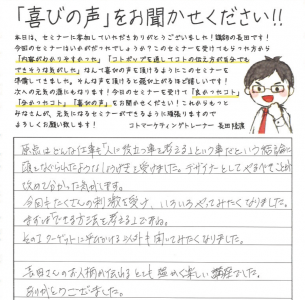 「喜びの声」をお聞かせください!!
本日は、セミナーに参加していただきありがとうございました!講師の長田です!
今回のセミナーはいかがだったでしょうか?このセミナーを受けてもらった方から
「内容がわかりやすかった」「コトポップを通してコトの伝え方が自分でも
できそうな気がした」なんて喜びの声を頂けるようにこのセミナーを
準備してきました。そんな声を頂けると飛び上がるほど嬉しいです!
次への元気の源にもなります!今日のセミナーを受けて「良かったコト」
「分かったコト」「喜びの声」をお聞かせください!これからもっと
みなさんが、元気になるセミナーができるように頑張りますので
よろしくお願い致します!
コトマーケティングトレーナー 長田
仕事も「人に役立つ事を考える」という事だという
頭をなぐられたような を受けました。デザイナーとしてやるべきことが
改めて分かった気がします。
今回もたくさんの刺激を受け、いろいろやってみたくなりました。
まずは「できる方法を考える」ですね。
聞いてみたくなりました。
長田さんのお人柄が伝わるとても 楽しい講座でした。
ありがとうございました。